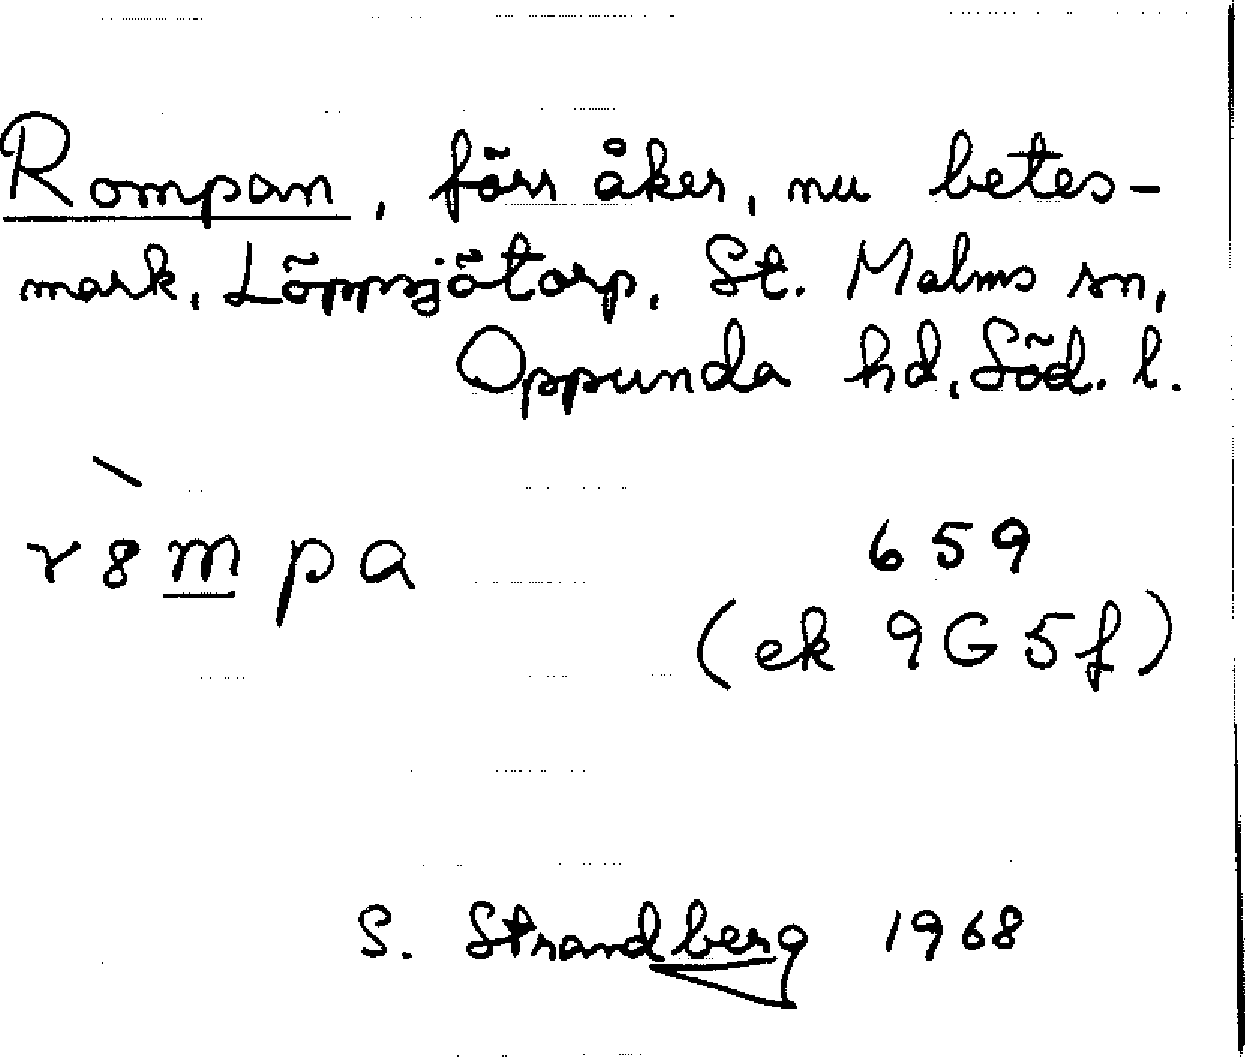 Rompan, förr åker, nu betes-
mark, Löppsjötorp, St. Malms sn,
Oppunda hd, Söd. l.
r8mpa
659
(ek 9G5f)
S. Strandberg 1968